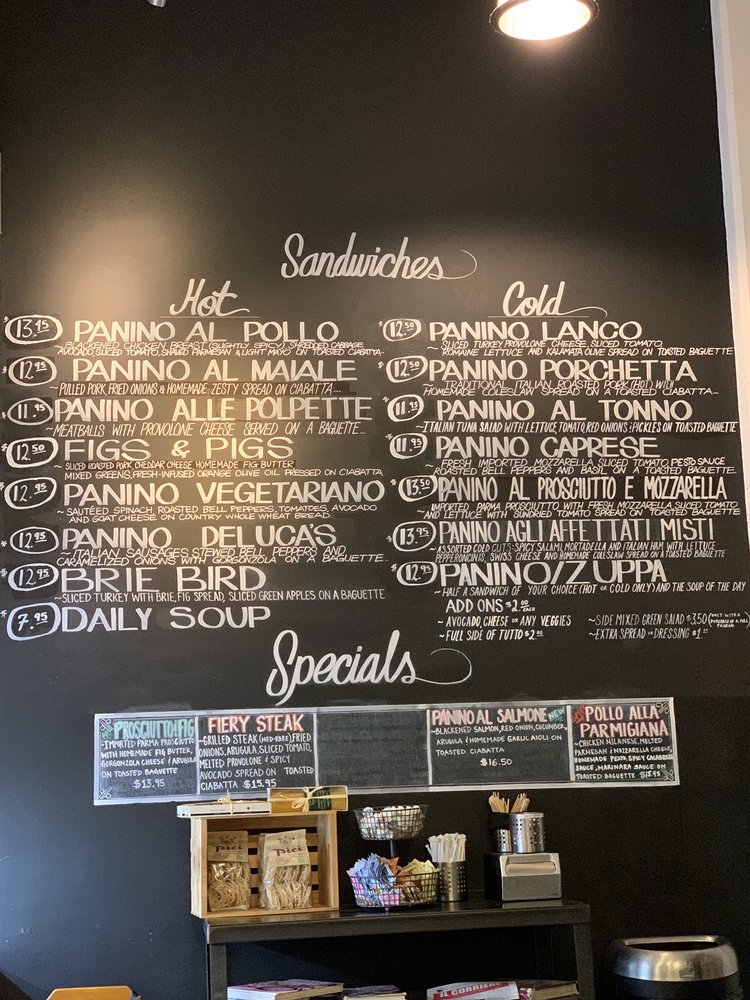 Sandwiches
Hot
13.95 PANINO AL POLLO
~ BLACKENED CHICKEN BREAST (SLIGHTLY SPICY), SHREDDED CABBAGE,
AVOCADO, SLICED TOMATO, SHAVED PARMESAN & LIGHT MAYO ON TOASTED CIABATTA~
12.95 PANINO AL MAIALE
~ PULLED PORK, FRIED ONIONS & HOMEMADE ZESTY SPREAD ON CIABATTA...
11.95 PANINO ALLE POLPETTE
~ MEATBALLS WITH PROVOLONE CHEESE SERVED ON A BAGUETTE...
12.50 FIGS & PIGS
~ SLICED ROASTED PORK, CHEDDAR CHEESE HOMEMADE FIG BUTTER,
MIXED GREENS, FRESH-INFUSED ORANGE OLIVE OIL PRESSED ON CIABATTA
12.95 PANINO VEGETARIANO
~ SAUTÉED SPINACH, ROASTED BELL PEPPERS, TOMATOES, AVOCADO
AND GOAT CHEESE ON COUNTRY WHOLE WHEAT BREAD
12.95 PANINO DELUCA'S
~ ITALIAN SAUSAGES, STEWED BELL PEPPERS AND
CARAMELIZED ONIONS WITH GORGONZOLA ON A BAGUETTE
12.95 BRIE BIRD
~ SLICED TURKEY WITH BRIE, FIG SPREAD, SLICED GREEN APPLES ON A BAGUETTE
7.95 DAILY SOUP
Cold
12.50 PANINO LANCO
~ SLICED TURKEY, PROVOLONE CHEESE, SLICED TOMATO,
ROMAINE LETTUCE AND KALAMATA OLIVE SPREAD ON TOASTED BAGUETTE
12.50 PANINO PORCHETTA
~ TRADITIONAL ITALIAN ROASTED PORK (HOT) WITH
HOMEMADE COLESLAW SPREAD ON A TOASTED CIABATTA...
11.95 PANINO AL TONNO
~ ITALIAN TUNA SALAD WITH LETTUCE, TOMATO, RED ONIONS & PICKLES ON TOASTED BAGUETTE
11.95 PANINO CAPRESE
~ FRESH IMPORTED MOZZARELLA, SLICED TOMATO, PESTO SAUCE
ROASTED BELL PEPPERS AND BASIL ON A TOASTED BAGUETTE
13.50 PANINO AL PROSCIUTTO E MOZZARELLA
IMPORTED PARMA PROSCIUTTO WITH FRESH MOZZARELLA SLICED TOMATO
AND LETTUCE WITH SUNDRIED TOMATO SPREAD ON TOASTED BAGUETTE
13.95 PANINO AGLI AFFETTATI MISTI
~ ASSORTED COLD CUTS: SPICY SALAMI, MORTADELLA AND ITALIAN HAM WITH LETTUCE
PEPPERONCINIS, SWISS CHEESE AND HOMEMADE COLESLAW SPREAD ON A TOASTED BAGUETTE
12.95 PANINO/ZUPPA
~ HALF A SANDWICH OF YOUR CHOICE (HOT OR COLD ONLY) AND THE SOUP OF THE DAY
ADD ONS $2.00 EACH
~ AVOCADO, CHEESE OR ANY VEGGIES
~ FULL SIDE OF TUTTO $2.00
~ SIDE MIXED GREEN SALAD $3.50 (ONLY WITH A PURCHASE OF A FULL PANINO)
~ EXTRA SPREAD OR DRESSING $1.00
Specials
PROSCIUTTO & FIG
~ IMPORTED PARMA PROSCIUTTO
WITH HOMEMADE FIG BUTTER,
GORGONZOLA CHEESE & ARUGULA
ON TOASTED BAGUETTE
$13.95
FIERY STEAK
~ GRILLED STEAK (MED-RARE), FRIED
ONIONS, ARUGULA, SLICED TOMATO,
MELTED PROVOLONE & SPICY
AVOCADO SPREAD ON TOASTED
CIABATTA $15.95
PANINO AL SALMONE NEW
~ BLACKENED SALMON, RED ONION, CUCUMBER,
ARUGULA & HOMEMADE GARLIC AIOLI ON
TOASTED CIABATTA
$16.50
POLLO ALLA
PARMIGIANA
~ CHICKEN MILANESE, MELTED
PARMESAN & MOZZARELLA CHEESE,
HOMEMADE PESTO, SPICY CALABRESE
SAUCE, MARINARA SAUCE ON
TOASTED BAGUETTE $13.95
Pici
Pici
IL CORRIERE